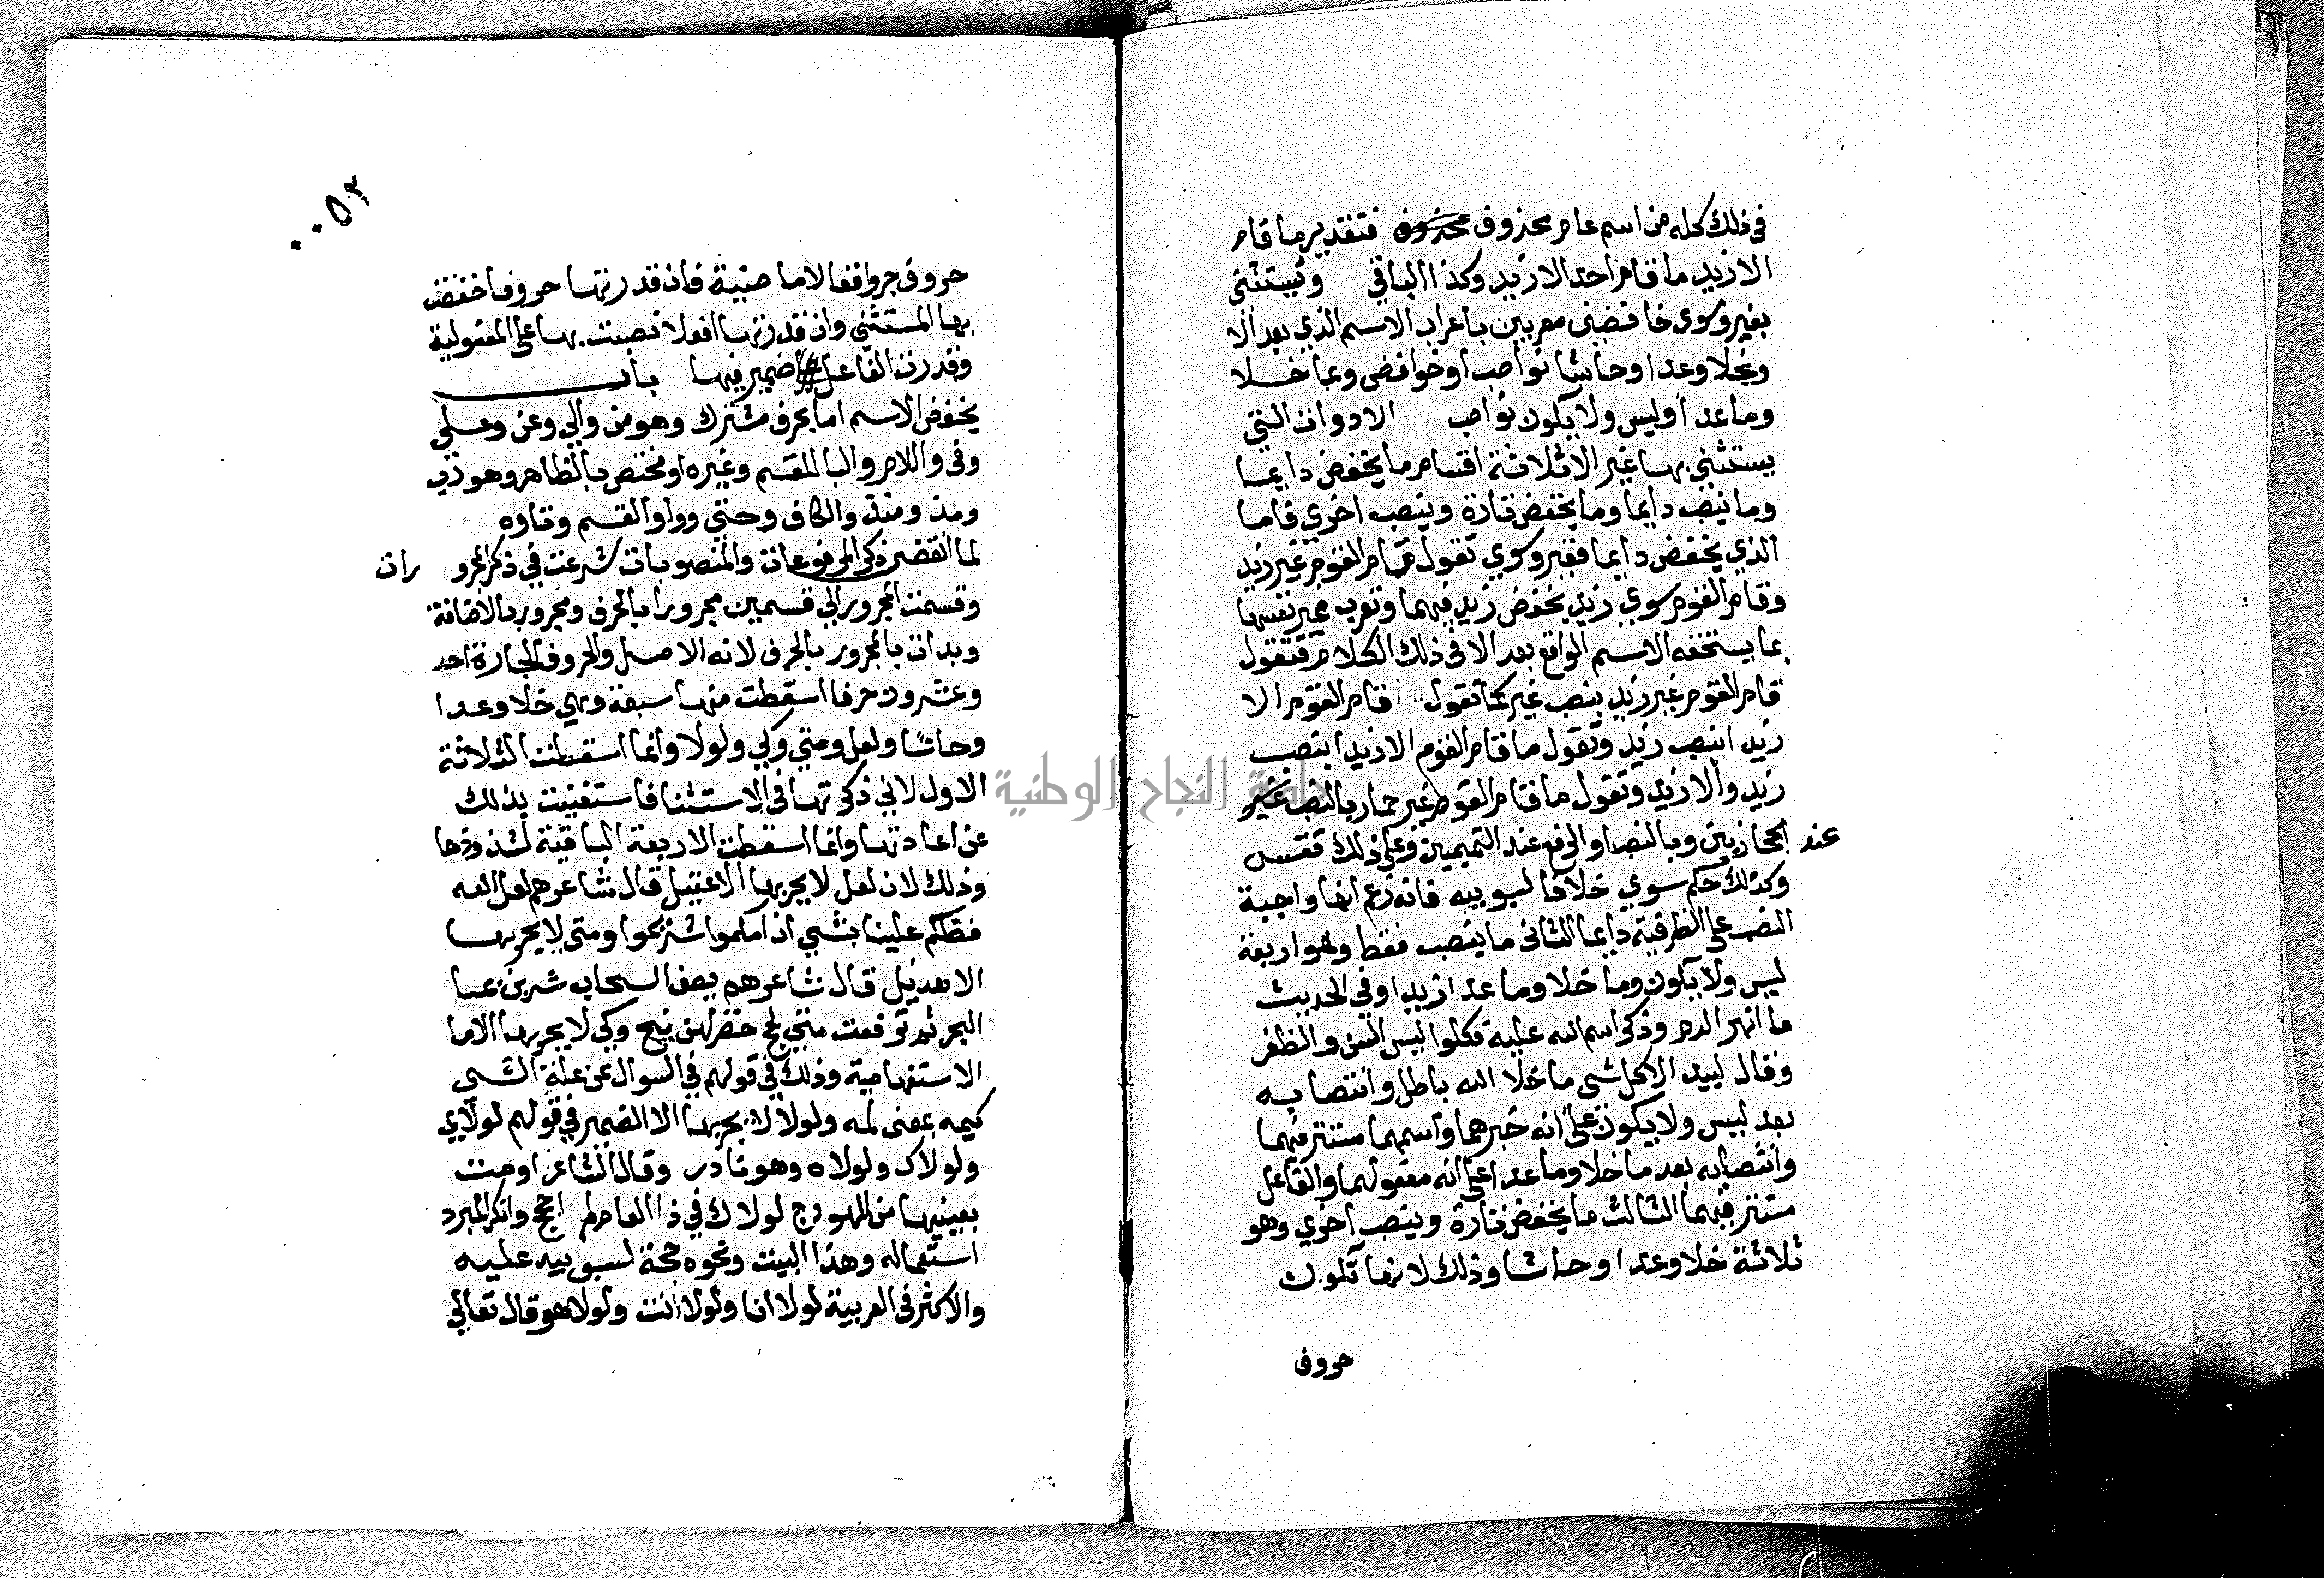 في ذلك كله من اسم عام محذوف فتقدير ما قام
الا زيد ما قام احد الا زيد وكذا الباقي ويستثنى
بغير وسوى خافضين معربين باعراب الاسم الذي بعد الا
وبخلا وعدا وحاشا نواصب او خوافض وبما خلا
وما عدا وليس ولا يكون نواصب الادوات التي
يستثنى بها غير الا ثلاثة اقسام ما يخفض دايما
وما ينصب دايما وما يخفض تارة وينصب اخرى فاما
الذي يخفض دايما فغير وسوي تقول قام القوم غير زيد
وقام القوم سوي زيد بخفض زيد فيهما وتعرب غير نفسها
بما يستحقه الاسم الواقع بعد الا في ذلك الكلام فتقول
قام القوم غير زيد بنصب غير كما تقول قام القوم الا
زيد ا بنصب زيد وتقول ما قام القوم الا زيدا بنصب
زيد والا زيد وتقول ما قام القوم غير حمار بالنصب غير
عند الحجازيين وبالنصب او الرفع عند التميميين وعلي ذلك فقس
وكذلك حكم سوي خلافا لسيبويه فانه زعم انها واجبة
النصب على الظرفية دايما الثاني ما ينصب فقط وهو اربعة
ليس ولا يكون وما خلا وما عدا زيدا وفي الحديث
ما انهر الدم وذكر اسم الله عليه فكلوا ليس السن والظفر
وقال لبيد الا كل شي ما خلا الله باطل وانتصابه
بعد ليس ولا يكون على انه خبرهما واسمهما مستتر فيهما
وانتصابه بعد ما خلا وما عدا على انه مفعولهما والفاعل
مستتر فيهما الثالث ما يخفض تارة وينصب اخري وهو
ثلاثة خلا وعدا وحاشا وذلك لانها تكون
حروف
٠٠٥٣
حروف جر وافعالا ماضية فان قدرتها حروفا خفضت
بها المستثني وان قدرتها افعلا نصبت بها على المفعولية
وقدرت الفاعل ضمير فيها باب
يخفض الاسم اما بحرف مشترك وهو من والي وعن وعلي
وفي واللام والبا للقسم وغيره او مختص بالظاهر وهو رب
ومذ ومنذ والكاف وحتي وواو القسم وتاوه
لما انقضى ذكر المرفوعات والمنصوبات شرعت في ذكر المجرو رات
وقسمت المجرور الي قسمين مجرورا بالحرف ومجرور بالاضافة
وبدات بالمجرور بالحرف لانه الاصل والحروف الجارة احد
وعشرون حرفا اسقطت منها سبعة وهي خلا وعدا
وحاشا ولعل ومتي وكي ولولا وانما اسقطت الثلاثة
الاول لاني ذكرتها في الاستثنا فاستغنيت بذلك
عن اعادتها وانما اسقطت الاربعة الباقية لشذوذها
وذلك لان لعل لا يجر بها الا عقيل قال شاعرهم لعل الله
فضلكم علينا بشي ان امكموا شريكموا ومتي لا يجر بها
الا هذيل قال شاعرهم يصف السحاب شربن بما
البحر ثم ترفعت متي لجج خضر لهن نيج وكي لا يجر بها الا ما
الاستفهامية وذلك في قولهم في السوال عن علة الشي
كيمه بمعنى لمه ولولا لا يجر بها الا الضمير في قولهم لولاي
ولولاك ولولاه وهو نادر وقال الشاعر اومت
بعينيها من الهودج لولاك في ذا العام لم احج وانكر المبرد
استعماله وهذا البيت ونحوه حجة لسيبويه عليه
والاكثر في العربية لولا انا ولولا انت ولولا هو قال تعالي
جامعة النجاح الوطنية